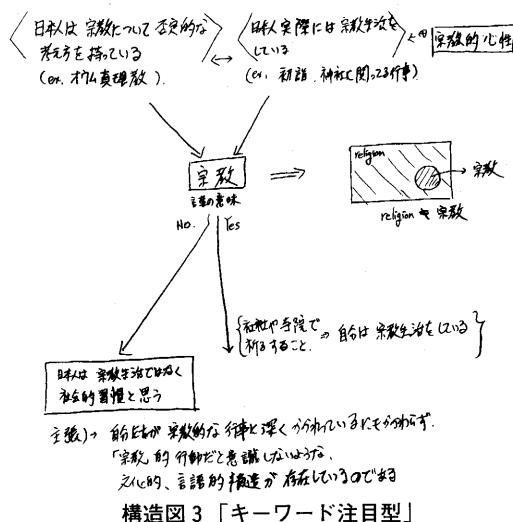 日本人は宗教について否定的な
考え方を持っている
(ex. オウム真理教).
日本人実際には宗教生活を
している
(ex. 初詣. 神社に関ってる行事)
宗教的心性
宗教
言葉の意味
No.
Yes
religion
宗教
religion 宗教
社社や寺院で
祈るすること.
⇒ 自分は宗教生活をしている
日本人は宗教生活ではなく
社会的習慣と思う
主張)→ 自分たちが宗教的な行事と深くかかわっているにもかかわらず.
「宗教」的行動だと意識しないような、
文化的、言語的構造が存在しているのである
構造図3「キーワード注目型」